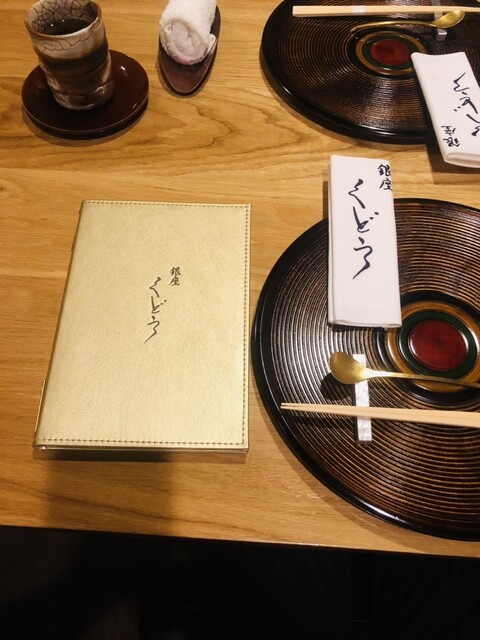 銀座
くどう
銀座
くどう
銀座
くどう